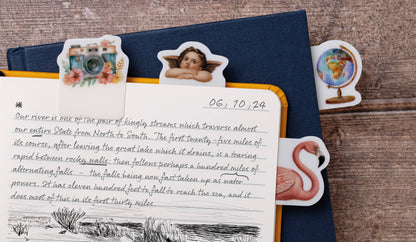 06, 10, 24
Our river is one of the pair of kingly streams which traverses almost
our entire State from North to South. The first twenty-five miles of
its course, after leaving the great lake which it drains, is a tearing
rapid between rocky walls; then follows perhaps a hundred miles of
alternating falls — the falls being now fast taken up as water
powers. It has eleven hundred feet to fall to reach the sea, and it
does most of this in its first thirty miles.